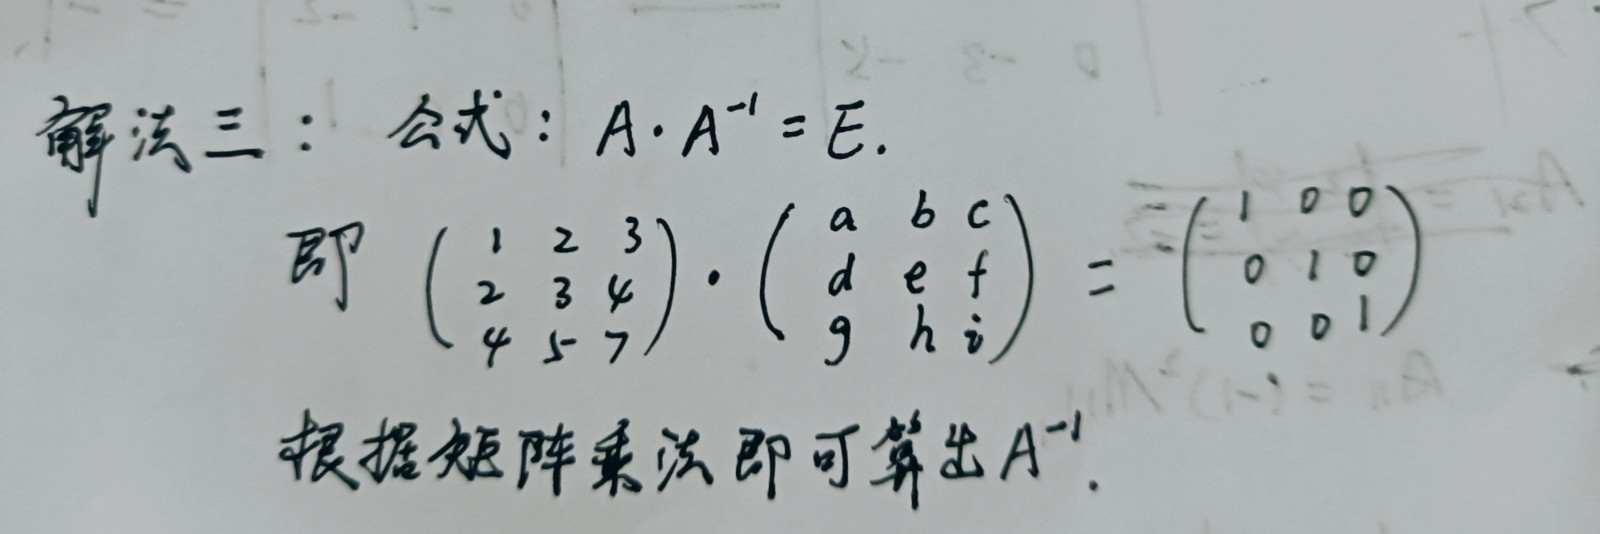 解法三: 公式: A·A⁻¹=E.
即 (1 2 3 / 2 3 4 / 4 5 7)·(a b c / d e f / g h i) = (1 0 0 / 0 1 0 / 0 0 1)
根据矩阵乘法即可算出A⁻¹.